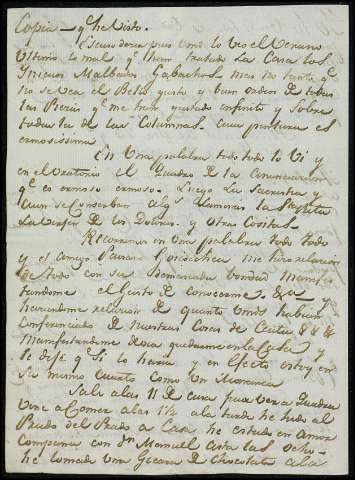 Copia — q.e he Visto.
Escuso decir pues Vmd lo Vio el Verano
Ultimo lo mal q.e han tratado La Casa los
Yniquos Malbados Gabachos mas no tanto q.e
no se vea el Bello gusto y buen orden de todas
las Piezas q.e me han gustado infinito y Sobre
todas la de las Columnas. cuya pintura es
ermosissima
En Una palabra todo todo lo Vi y
en el Oratorio el Quadro de la Anunciacion
q.e es ermoso ermoso. Luego La Sacristia y
aun se conserban alg.s
La Virgen de los Dolores. y otras Cositas.
Recorrimos en una palabra todo todo
y el amigo me hizo relacion
de todo con su demasiada bondad Manifes
tandome el Gusto de conocerme. &.a y
haciendome relacion de quanto Vmds habian
Conferenciado de nuestras Cosas de Ceuta &&&
Manifestandome devia quedarme en la Casa y
le dejé q.e Si lo haria y en efecto estoy en
su mismo Cuarto como Un Monarca
Sali a las 11 de casa para ver a
Vine a Comer a las 1½ a la tarde he hido al
Prado del Prado a Casa he estado en Amor
Compania con D.n Manuel asta las Ocho-
he tomado Una Gicara de Chocolate a la